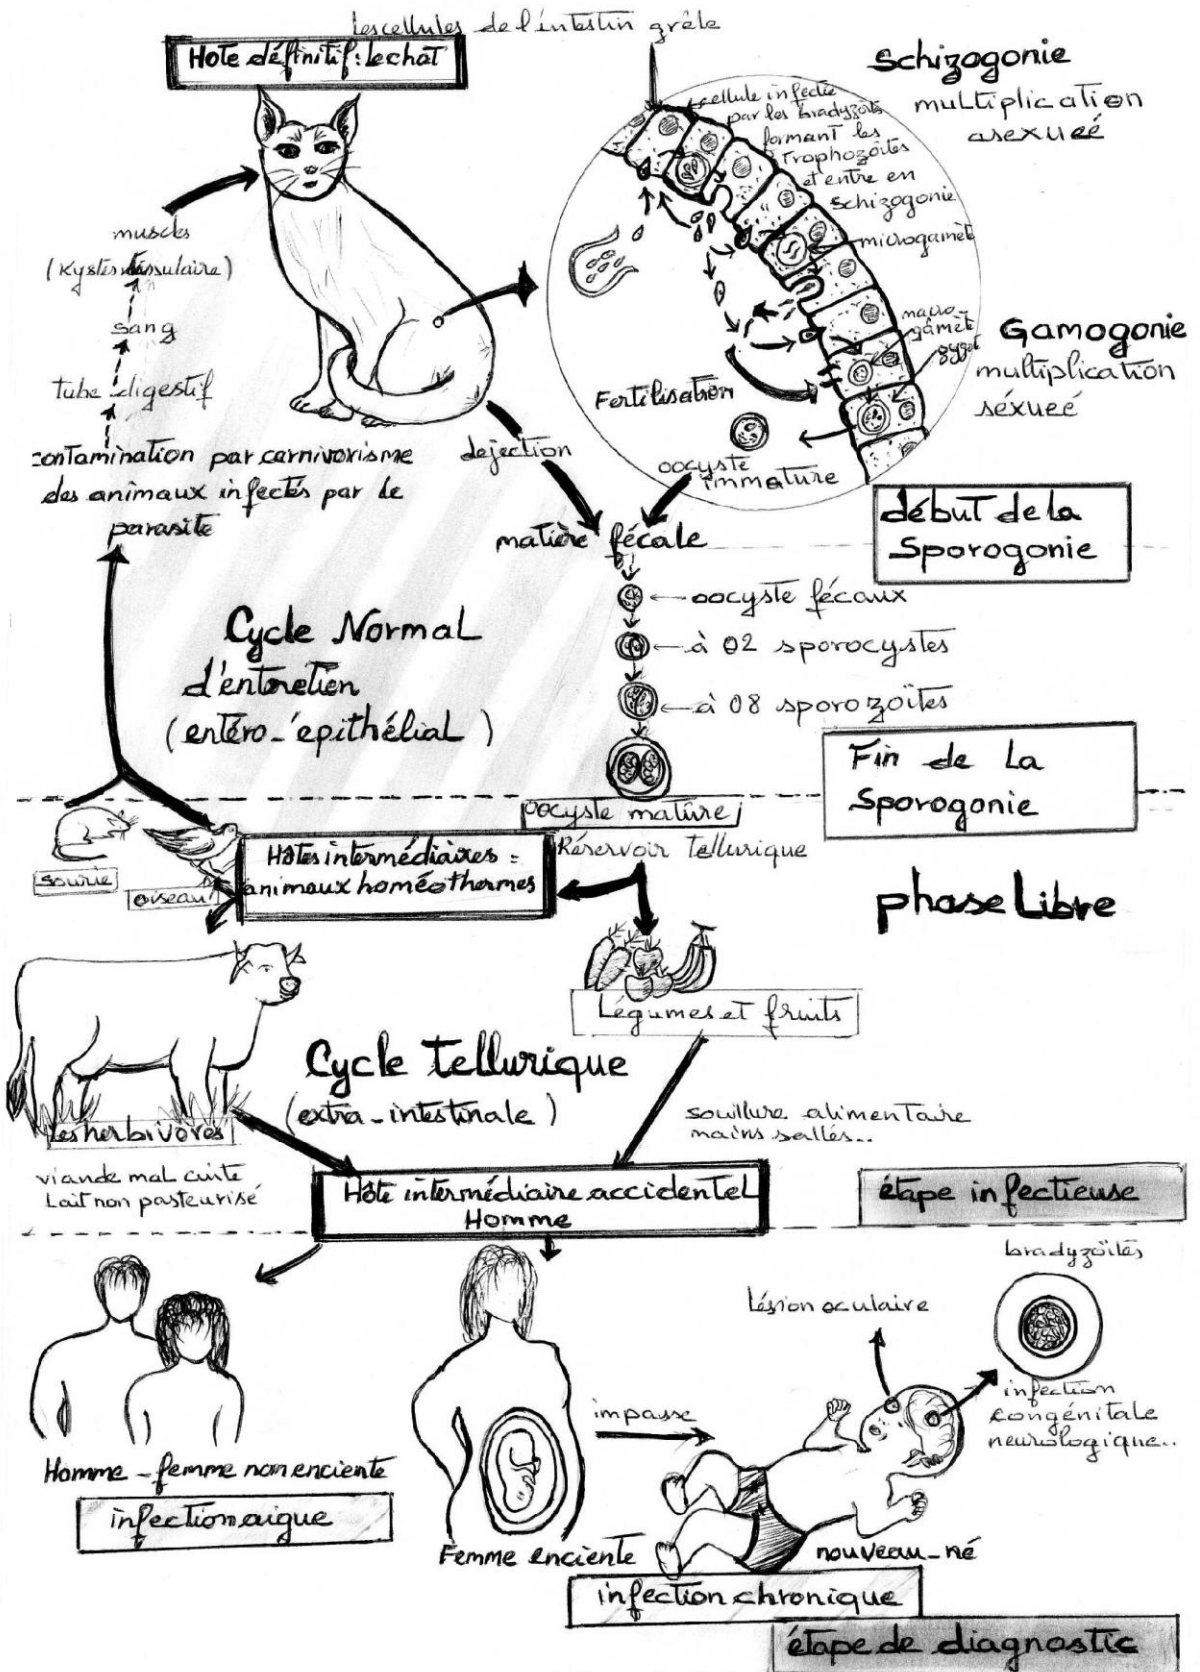 Les cellules de l'intestin grêle
Hote définitif: le chat
Schizogonie
multiplication
asexueé
cellule infectée
par les bradyzoïts
formant les
Trophozoïtes
et entre en
schizogonie
microgamèt
macro
gamèt
zygot
Gamogonie
multiplication
séxueé
Fertilisation
oocyste
immature
muscles
(Kystes tissulaire)
sang
tube digestif
contamination par carnivorisme
des animaux infectés par le
parasite
dejection
matière fécale
début de la
Sporogonie
oocyste fécaux
à 02 sporocystes
à 08 sporozoïtes
Cycle Normal
d'entretien
(entéro-épithélial)
Fin de La
Sporogonie
oocyste mature
Réservoir Tellurique
Hôtes intermédiaires =
animaux homéothermes
sourie
oiseau
phase Libre
Légumes et fruits
Cycle Tellurique
(extra-intestinale)
Les herbivores
viande mal cuite
Lait non pasteurisé
souillure alimentaire
mains sallés..
Hôte intermédiaire accidentel
Homme
étape infectieuse
bradyzoïtes
Lésion oculaire
infection
congénitale
neurologique..
impasse
Homme - femme non enciente
infection aigue
Femme enciente
nouveau-né
infection chronique
étape de diagnostic